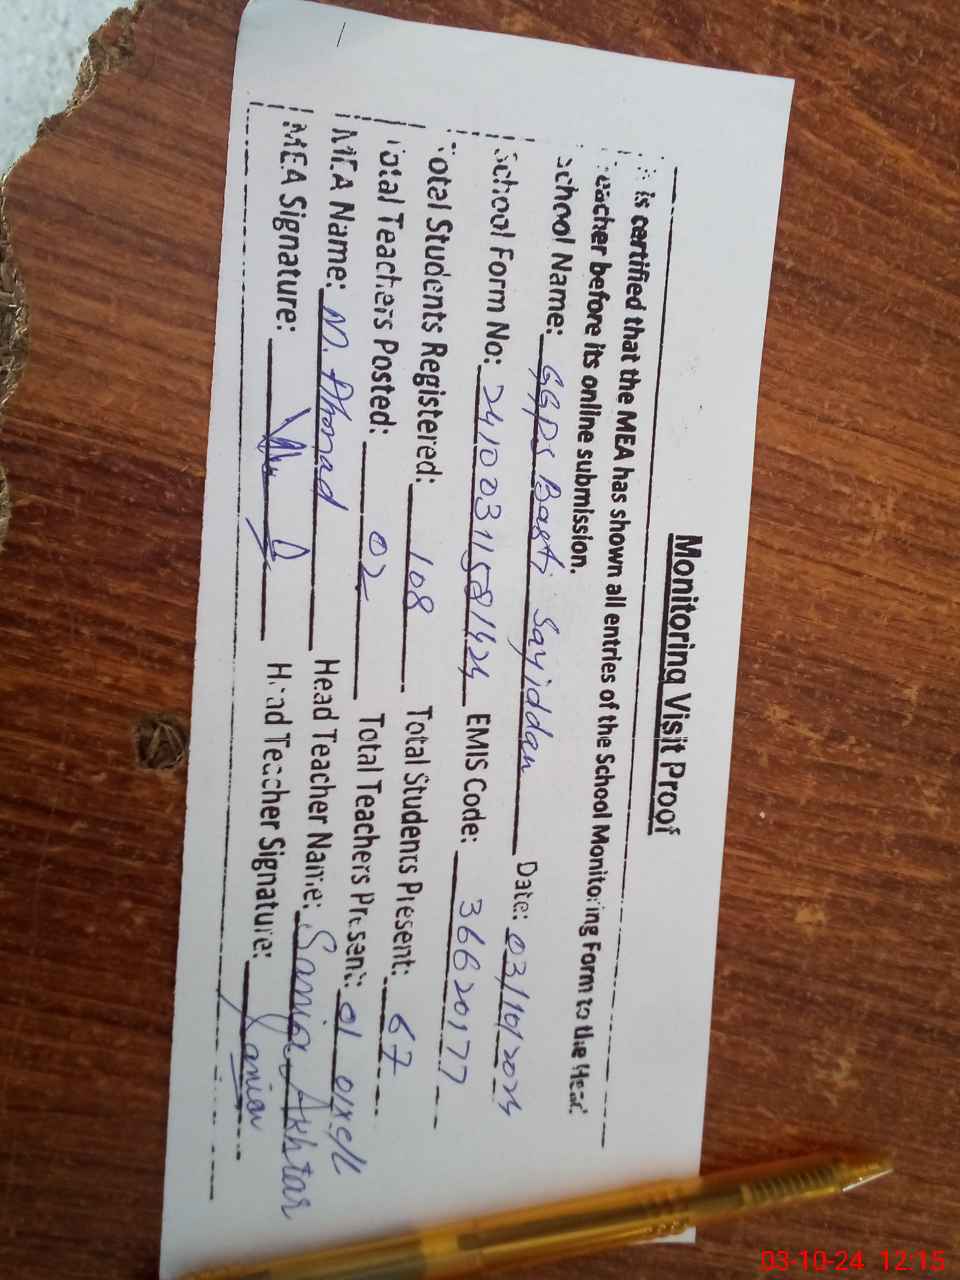 Monitoring Visit Proof
is certified that the MEA has shown all entries of the School Monitoring Form to the Head
Teacher before its online submission.
School Name: GGPS Basti Sayiddan Date: 03/10/2024
School Form No: 24100311581424 EMIS Code: 36620177
Total Students Registered: 108 Total Students Present: 67
Total Teachers Posted: 02 Total Teachers Present: 01 01
MEA Name: M. Ahmad Head Teacher Name: Samia Akhtar
MEA Signature: Head Teacher Signature: Samia
03-10-24 12:15